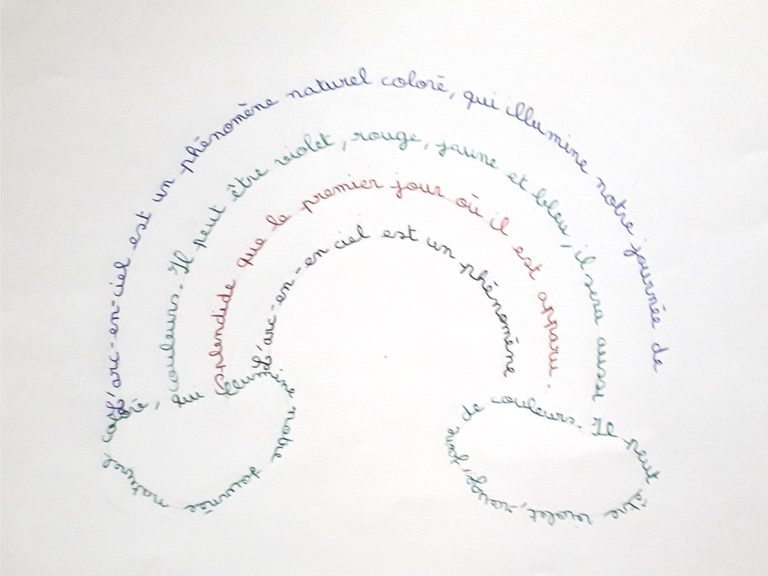 L'arc-en-ciel est un phénomène naturel coloré, qui illumine notre journée de
couleurs. Il peut être violet, rouge, jaune et bleu, il sera aussi
splendide que le premier jour où il est apparu.
L'arc-en-en ciel est un phénomène
naturel coloré, qui illumine notre journée
de couleurs. Il peut être violet, rouge, jaune